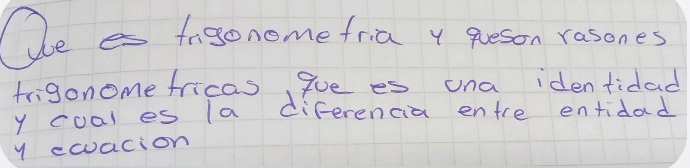 Que es trigonometria y queson rasones
trigonometricas que es una identidad
y cual es la diferencia entre entidad
y ecuacion